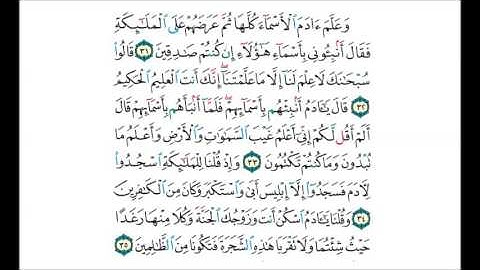 وَعَلَّمَ ءَادَمَ ٱلْأَسْمَآءَ كُلَّهَا ثُمَّ عَرَضَهُمْ عَلَى ٱلْمَلَـٰٓئِكَةِ
فَقَالَ أَنۢبِـُٔونِى بِأَسْمَآءِ هَـٰٓؤُلَآءِ إِن كُنتُمْ صَـٰدِقِينَ ٣١ قَالُوا۟
سُبْحَـٰنَكَ لَا عِلْمَ لَنَآ إِلَّا مَا عَلَّمْتَنَآ إِنَّكَ أَنتَ ٱلْعَلِيمُ ٱلْحَكِيمُ
٣٢ قَالَ يَـٰٓـَٔادَمُ أَنۢبِئْهُم بِأَسْمَآئِهِمْ فَلَمَّآ أَنۢبَأَهُم بِأَسْمَآئِهِمْ قَالَ
أَلَمْ أَقُل لَّكُمْ إِنِّىٓ أَعْلَمُ غَيْبَ ٱلسَّمَـٰوَٰتِ وَٱلْأَرْضِ وَأَعْلَمُ مَا
تُبْدُونَ وَمَا كُنتُمْ تَكْتُمُونَ ٣٣ وَإِذْ قُلْنَا لِلْمَلَـٰٓئِكَةِ ٱسْجُدُوا۟
لِـَٔادَمَ فَسَجَدُوٓا۟ إِلَّآ إِبْلِيسَ أَبَىٰ وَٱسْتَكْبَرَ وَكَانَ مِنَ ٱلْكَـٰفِرِينَ
٣٤ وَقُلْنَا يَـٰٓـَٔادَمُ ٱسْكُنْ أَنتَ وَزَوْجُكَ ٱلْجَنَّةَ وَكُلَا مِنْهَا رَغَدًا
حَيْثُ شِئْتُمَا وَلَا تَقْرَبَا هَـٰذِهِ ٱلشَّجَرَةَ فَتَكُونَا مِنَ ٱلظَّـٰلِمِينَ ٣٥